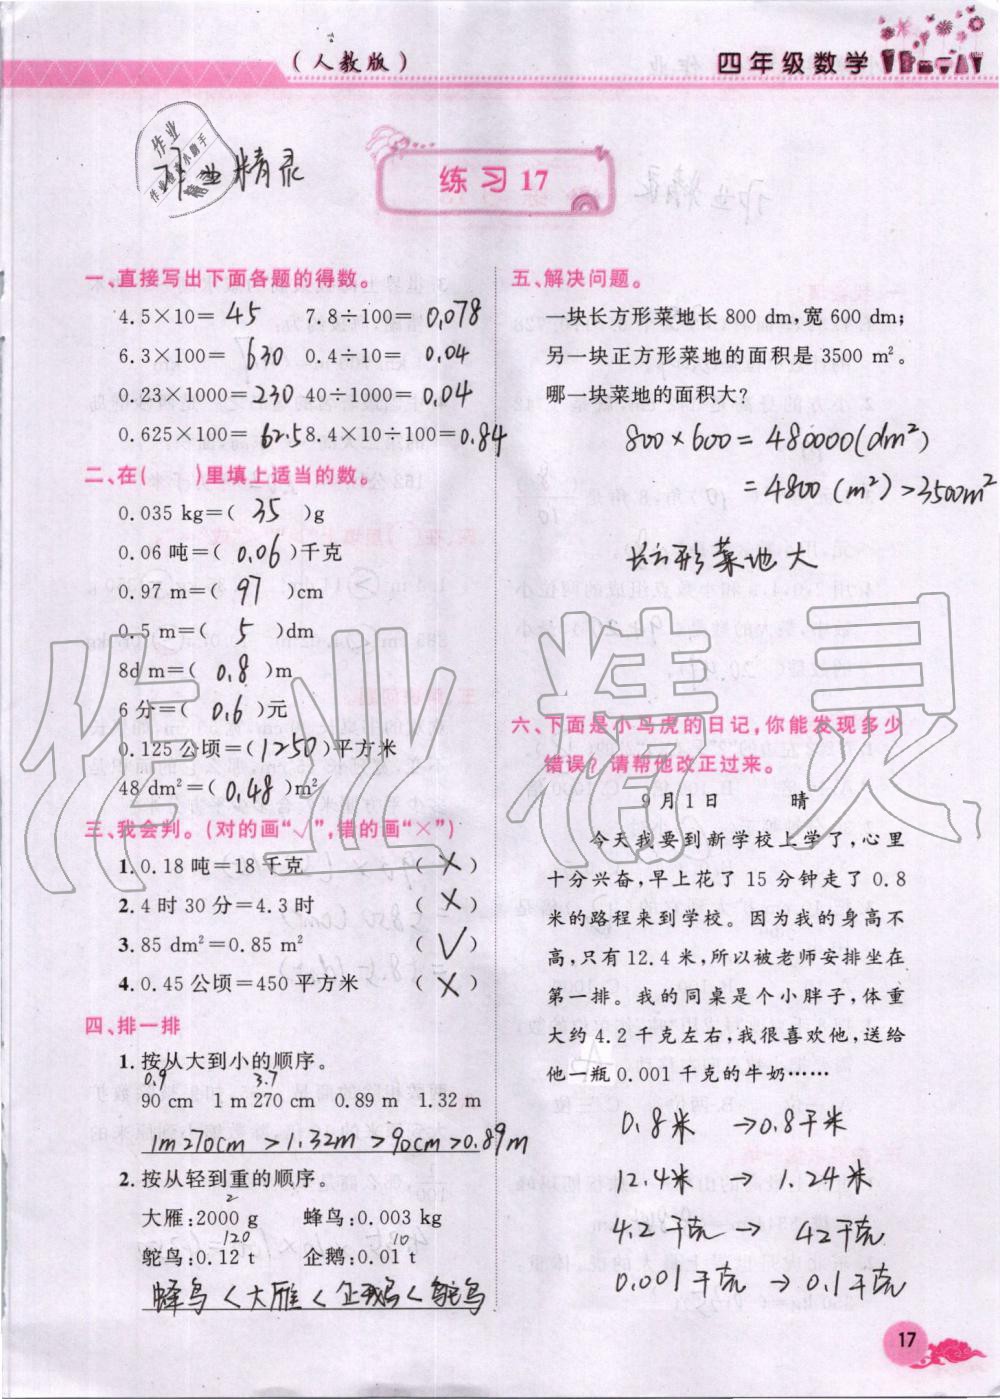 (人教版)
四年级数学
作业
作业检查小助手
精灵
作业精灵
练习 17
一、直接写出下面各题的得数。
4.5×10= 45 7.8÷100= 0.078
6.3×100= 630 0.4÷10= 0.04
0.23×1000= 230 40÷1000= 0.04
0.625×100= 62.5 8.4×10÷100= 0.84
二、在( )里填上适当的数。
0.035 kg=( 35 )g
0.06 吨=( 0.06 )千克
0.97 m=( 97 )cm
0.5 m=( 5 )dm
8d m=( 0.8 )m
6 分=( 0.6 )元
0.125 公顷=( 1250 )平方米
48 dm²=( 0.48 )m²
三、我会判。(对的画“√”,错的画“×”)
1. 0.18 吨=18 千克 ( × )
2. 4 时 30 分=4.3 时 ( × )
3. 85 dm²=0.85 m² ( √ )
4. 0.45 公顷=450 平方米 ( × )
四、排一排
1. 按从大到小的顺序。
0.9 3.7
90 cm 1 m 270 cm 0.89 m 1.32 m
1m270cm > 1.32m > 90cm > 0.89m
2. 按从轻到重的顺序。
2
大雁:2000 g 蜂鸟:0.003 kg
120 10
鸵鸟:0.12 t 企鹅:0.01 t
蜂鸟 < 大雁 < 企鹅 < 鸵鸟
五、解决问题。
一块长方形菜地长 800 dm,宽 600 dm;
另一块正方形菜地的面积是 3500 m²。
哪一块菜地的面积大?
800×600 = 480000(dm²)
= 4800 (m²) > 3500m²
长方形菜地大
六、下面是小马虎的日记,你能发现多少
错误?请帮他改正过来。
9 月 1 日 晴
今天我要到新学校上学了,心里
十分兴奋,早上花了 15 分钟走了 0.8
米的路程来到学校。因为我的身高不
高,只有 12.4 米,所以被老师安排坐在
第一排。我的同桌是个小胖子,体重
大约 4.2 千克左右,我很喜欢他,送给
他一瓶 0.001 千克的牛奶……
0.8米 → 0.8千米
12.4米 → 1.24米
4.2千克 → 42千克
0.001千克 → 0.1千克
作业精灵
17